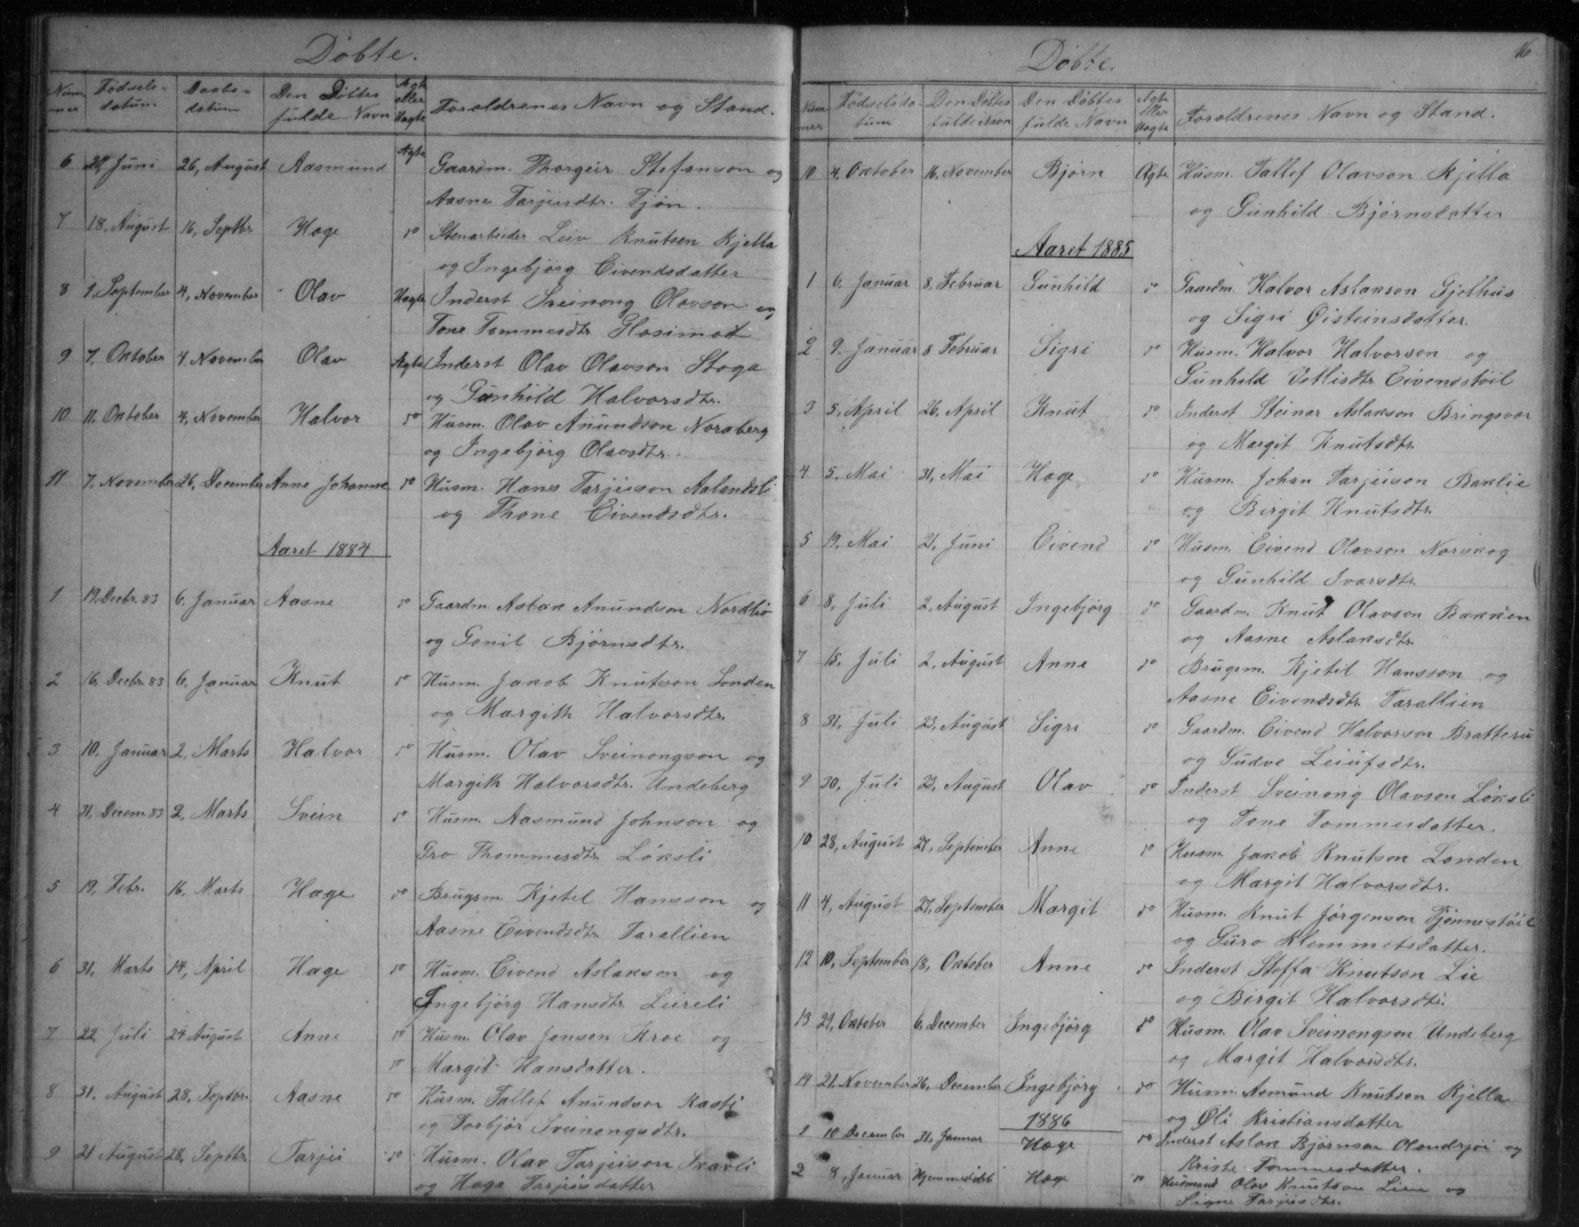 Døbte.
Num- mer Fødsels- datum Daabs- datum Den Døbtes fulde Navn Ægte eller Uægte Forældrenes Navn og Stand.
6 20, Juni 26, August Aasmund Ægte Gaardm. Thorgeir Stefanson og
Aasne Tarjeisdtr. Tjøn.
7 18, August 16, Septbr. Hæge do Stenarbeider Leiv Knutsen Kjella
og Ingebjørg Eivendsdatter
8 1, September 4, November Olav Uægte Inderst Sveinong Olavson og
Tone Tommesdtr. Glosimodt
9 7, Oktober 4 November Olav Ægte Inderst Olav Olavson Stoga
og Gunhild Halvorsdtr.
10 11, Oktober 4, November Halvor do Husm. Olav Anundson Noraberg
og Ingebjörg Olavsdtr.
11 7, November 26, December Anne Johanne do Husm. Hans Tarjeison Aalandsli
og Thone Eivendsdtr.
Aaret 1884
1 19, Decbr. 83 6, Januar Aasne do Gaardm. Aslak Anundson Nordbø
og Gonil Bjørnsdtr.
2 16, Decbr. 83 6, Januar Knut do Husm. Jakob Knutson Londen
og Margith Halvorsdtr.
3 10, Januar 2, Marts Halvor do Husm. Olav Sveinongson og
Margith Halvorsdtr. Undeberg
4 31, Decem. 83 2, Marts Svein do Husm. Aasmund Johnson og
Gro Thommesdtr. Løksli
5 19, Febr. 16, Marts Hæge do Brugsm. Kjetel Hansson og
Aasne Eivendsdtr. Tarallien
6 31, Marts 14, April Hæge do Husm. Eivend Aslakson og
Ingebjörg Hansdtr. Leireli
7 22, Juli 24 August Anne do Husm. Olav Jonson Kroe og
do Margit Hansdatter.
8 31, August 28, Septbr. Aasne do Husm. Tallef Anundson Kasti
og Torbjør Sveinongsdtr.
9 21 August 28, Septbr. Tarjei do Husm. Olav Tarjeison Skarli
og Hæge Tarjeisdatter
16
Døbte.
Num- mer Fødselsda- tum Den Døbtes fulde Navn Den Døbtes fulde Navn Ægte eller Uægte Forældrenes Navn og Stand.
10 4, Oktober 16, November Bjørn Ægte Husm. Tallef Olavson Kjella
og Gunhild Bjørnsdatter
Aaret 1885
1 6, Januar 8, Februar Gunhild do Gaardm. Halvor Aslakson Gjelhus
og Sigri Øisteinsdatter.
2 9, Januar 8 Februar Sigri do Husm. Halvor Halvorson og
Gunhild Vetlisdtr. Eivendstöil
3 5, April 26, April Knut do Inderst Steinar Aslakson Bringsvor
og Margit Knutsdtr.
4 5, Mai 31, Mai Hæge do Husm. Johan Tarjeison Baklie
og Birgit Knutsdtr.
5 19, Mai 21, Juni Eivend do Husm. Eivend Olavson Norskog
og Gunhild Ivarsdtr.
6 8, Juli 2, August Ingebjørg do Gaardm. Knut Olavson Bakken
og Aasne Aslaksdtr.
7 15, Juli 2, August Anne do Brugsm. Kjetil Hansson og
Aasne Eivendsdtr. Tarallien
8 31, Juli 23, August Sigri do Gaardm. Eivend Halvorson Bratteru
og Gudve Leiufsdtr.
9 30, Juli 23, August Olav do Inderst Sveinong Olavson Løksli
og Tone Tommesdatter.
10 28, August 27, September Anne do Husm. Jakob Knutson Londen
og Margit Halvorsdtr.
11 4, August 27, September Margit do Husm. Knut Jørgenson Tjønnestöil
og Guro Klemmetsdatter.
12 10, September 18, Oktober Anne do Inderst Steffa Knutson Lie
og Birgit Halvorsdtr.
13 21, Oktober 6, December Ingebjørg do Husm. Olav Sveinongson Undeberg
og Margit Halvorsdtr.
14 21, November 26, December Ingebjørg do Husm. Asmund Knutson Kjella
og Øli Kristiansdatter
1886
1 10 December 31, Januar Hæge do Inderst Aslak Bjørnson og
Kriste Tommesdatter.
2 8, Januar Hjemmedøbt Hæge do Husmand Olav Knutson Lien og
Signe Tarjeisdtr.